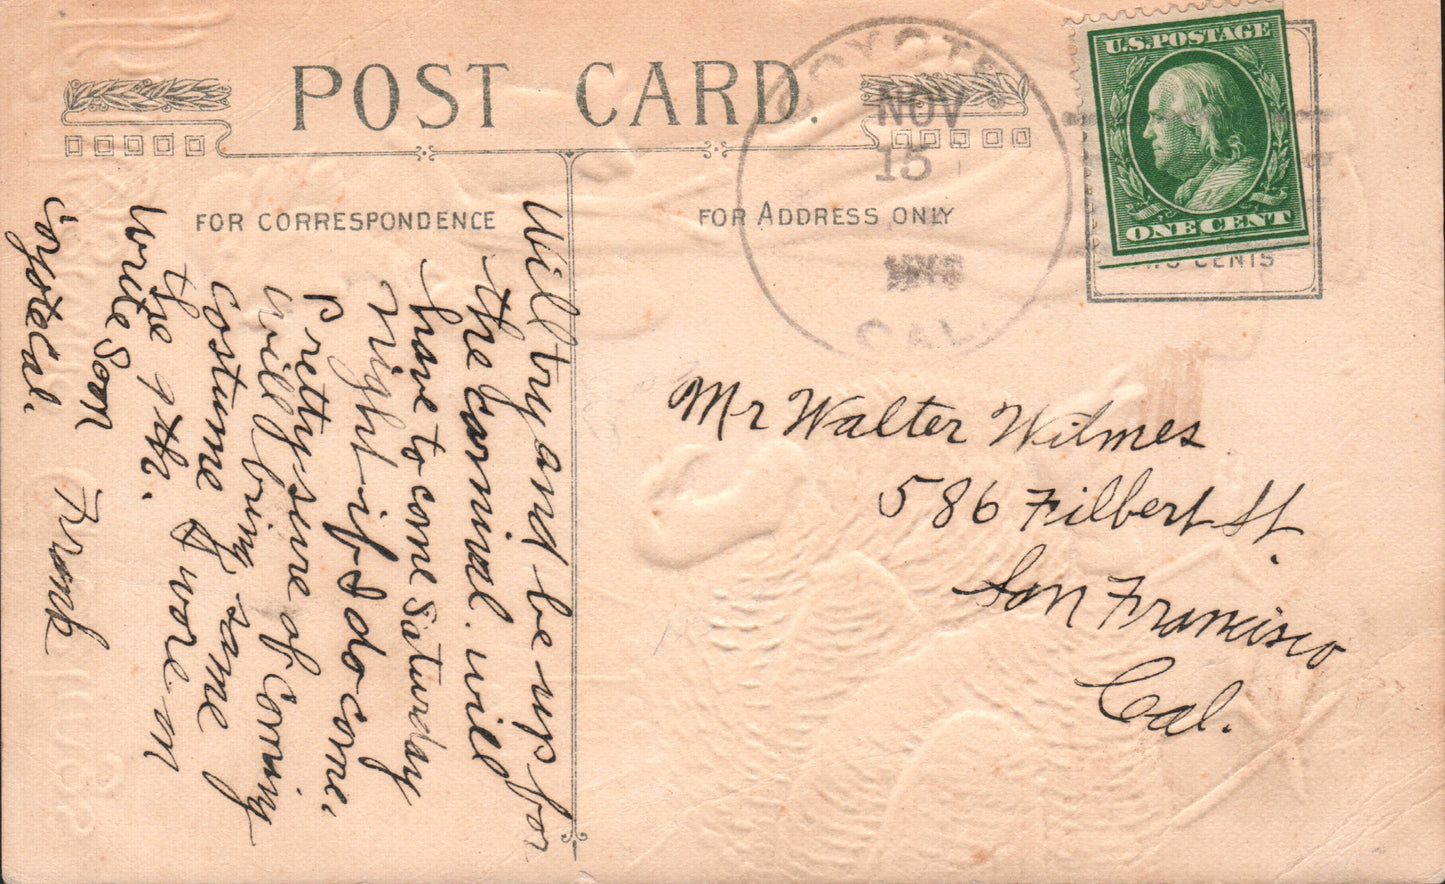 POST CARD.
FOR CORRESPONDENCE
FOR ADDRESS ONLY
COYOTE
NOV
15
CAL.
U.S. POSTAGE
ONE CENT
CENTS
Mr Walter Wilmes
586 Filbert St.
San Francisco
Cal.
Will try and be up for
the carnival. will
have to come Saturday
Night if I do come.
Pretty sure of coming
will bring same
costume I wore on
the 9th.
Write Soon
Frank
Coyote Cal.